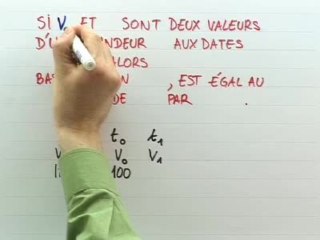 SI V₀ ET SONT DEUX VALEURS
D'U NDEUR AUX DATES
ALORS
BAS N , EST ÉGAL AU
DE PAR .
t₀ t₁
V V₀ V₁
1 100